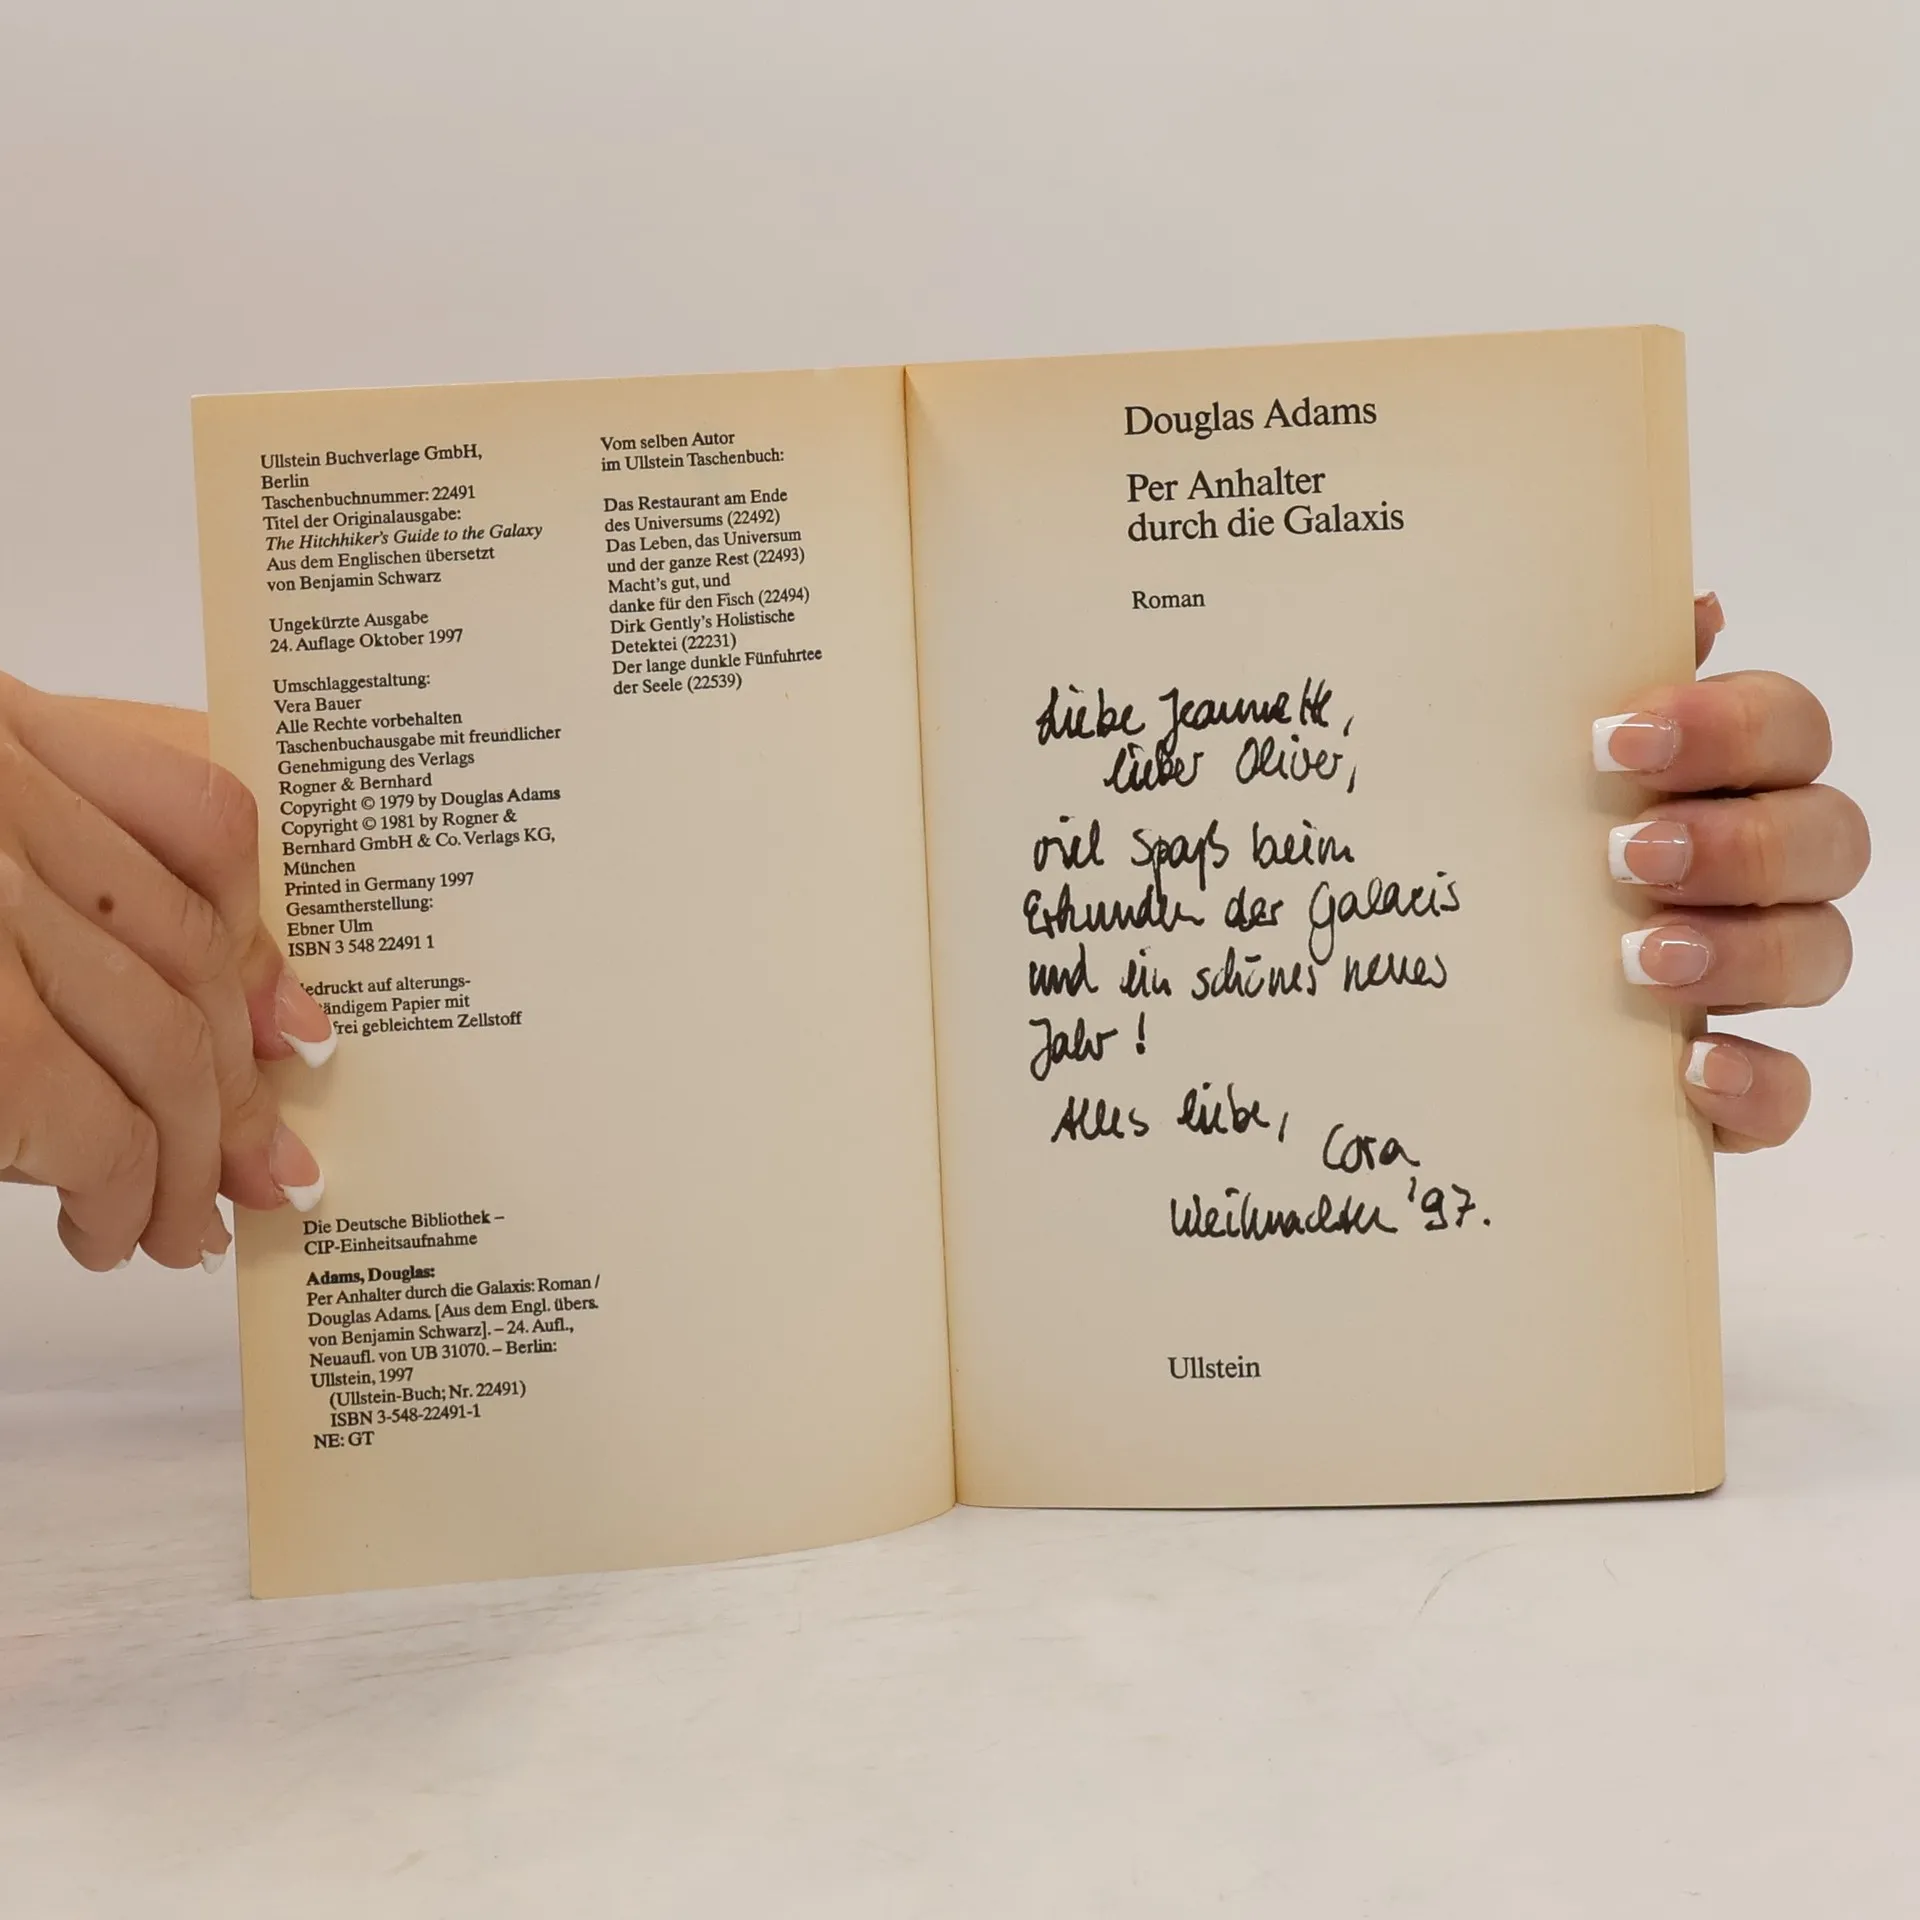 Ullstein Buchverlage GmbH,
Berlin
Taschenbuchnummer: 22491
Titel der Originalausgabe:
The Hitchhiker's Guide to the Galaxy
Aus dem Englischen übersetzt
von Benjamin Schwarz
Ungekürzte Ausgabe
24. Auflage Oktober 1997
Umschlaggestaltung:
Vera Bauer
Alle Rechte vorbehalten
Taschenbuchausgabe mit freundlicher
Genehmigung des Verlags
Rogner & Bernhard
Copyright © 1979 by Douglas Adams
Copyright © 1981 by Rogner &
Bernhard GmbH & Co. Verlags KG,
München
Printed in Germany 1997
Gesamtherstellung:
Ebner Ulm
ISBN 3 548 22491 1
edruckt auf alterungs-
ändigem Papier mit
frei gebleichtem Zellstoff
Die Deutsche Bibliothek –
CIP-Einheitsaufnahme
Adams, Douglas:
Per Anhalter durch die Galaxis: Roman /
Douglas Adams. [Aus dem Engl. übers.
von Benjamin Schwarz]. – 24. Aufl.,
Neuaufl. von UB 31070. – Berlin:
Ullstein, 1997
(Ullstein-Buch; Nr. 22491)
ISBN 3-548-22491-1
NE: GT
Vom selben Autor
im Ullstein Taschenbuch:
Das Restaurant am Ende
des Universums (22492)
Das Leben, das Universum
und der ganze Rest (22493)
Macht's gut, und
danke für den Fisch (22494)
Dirk Gently's Holistische
Detektei (22231)
Der lange dunkle Fünfuhrtee
der Seele (22539)
Douglas Adams
Per Anhalter
durch die Galaxis
Roman
Liebe Jeannette,
lieber Oliver,
viel Spaß beim
Erkunden der Galaxis
und ein schönes neues
Jahr!
Alles Liebe,
Cora
Weihnachten '97.
Ullstein